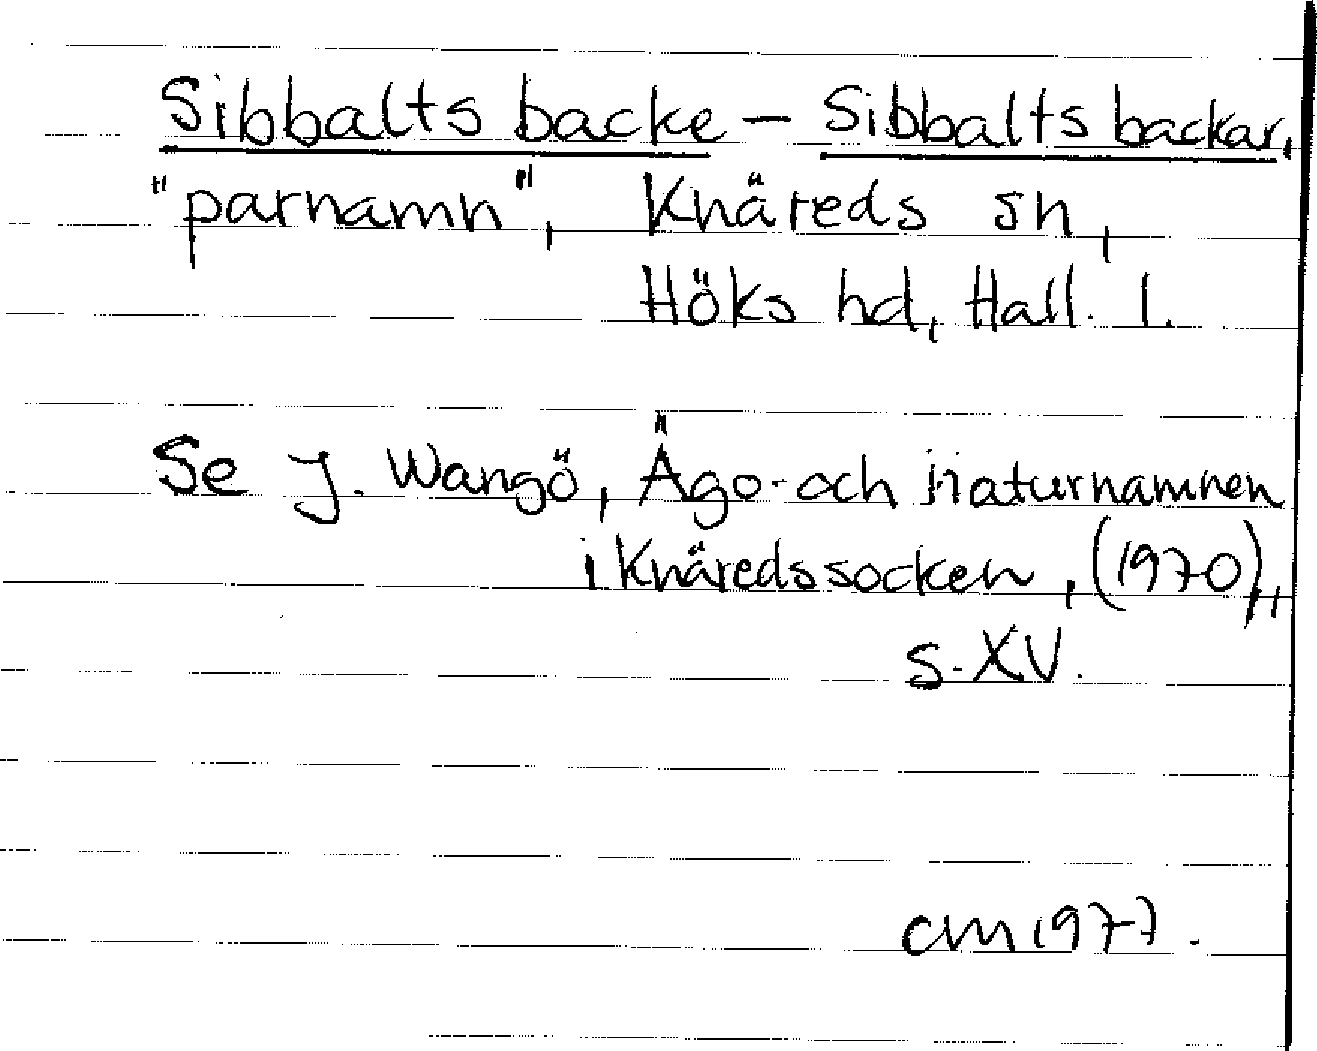 Sibbalts backe - Sibbalts backar,
"parnamn", Knäreds sn,
Höks hd, Hall. l.
Se J. Wangö, Ägo- och naturnamnen
i Knäreds socken, (1970),
s. XV.
CM 1977.